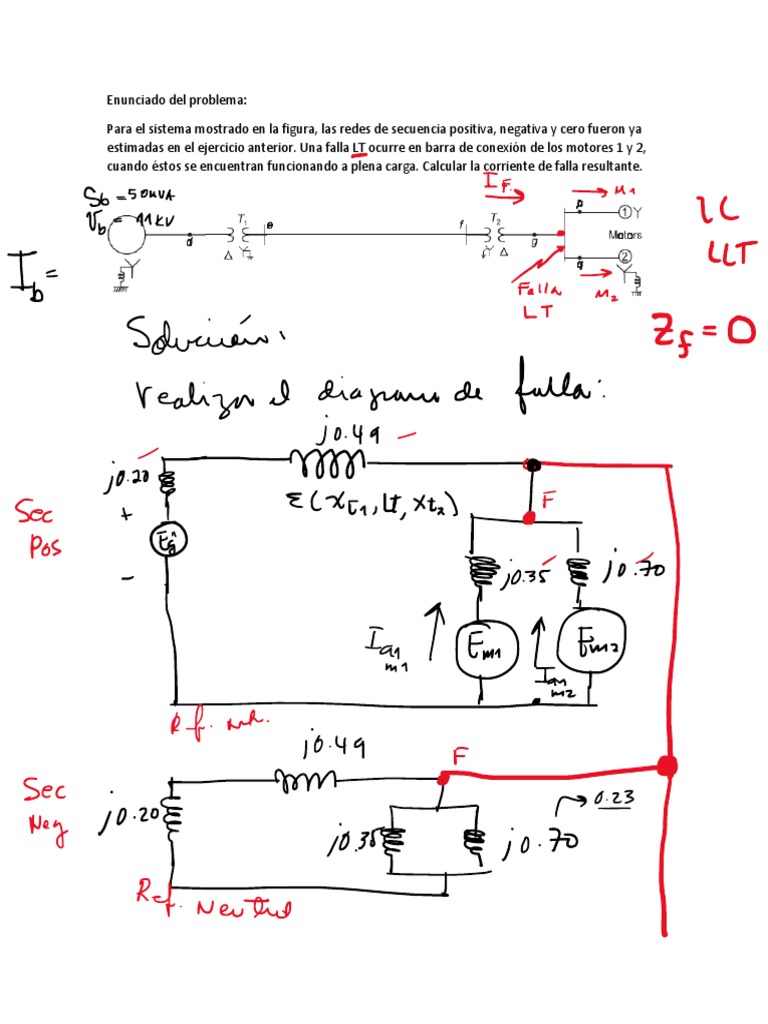 Enunciado del problema:
Para el sistema mostrado en la figura, las redes de secuencia positiva, negativa y cero fueron ya
estimadas en el ejercicio anterior. Una falla LT ocurre en barra de conexión de los motores 1 y 2,
cuando éstos se encuentran funcionando a plena carga. Calcular la corriente de falla resultante.
I F.
M1
Sb = 50MVA
Vb = 11KV
T1
e
f
T2
p
1 Y
LC
LLT
d
g
Motors
Δ Y
Y Δ
q
2
Y
Y
Ib =
Falla
LT
M2
Zf = 0
Solución:
realizar el diagrama de falla:
j0.49
j0.20
Σ(XT1, Lt, Xt2)
F
Sec
Pos
+
Eg
-
j0.35
j0.70
Ia1
m1
Em1
Em2
Ia1
m2
Ref. neu.
j0.49
F
Sec
Neg
j0.20
0.23
j0.35
j0.70
Ref. Neutral